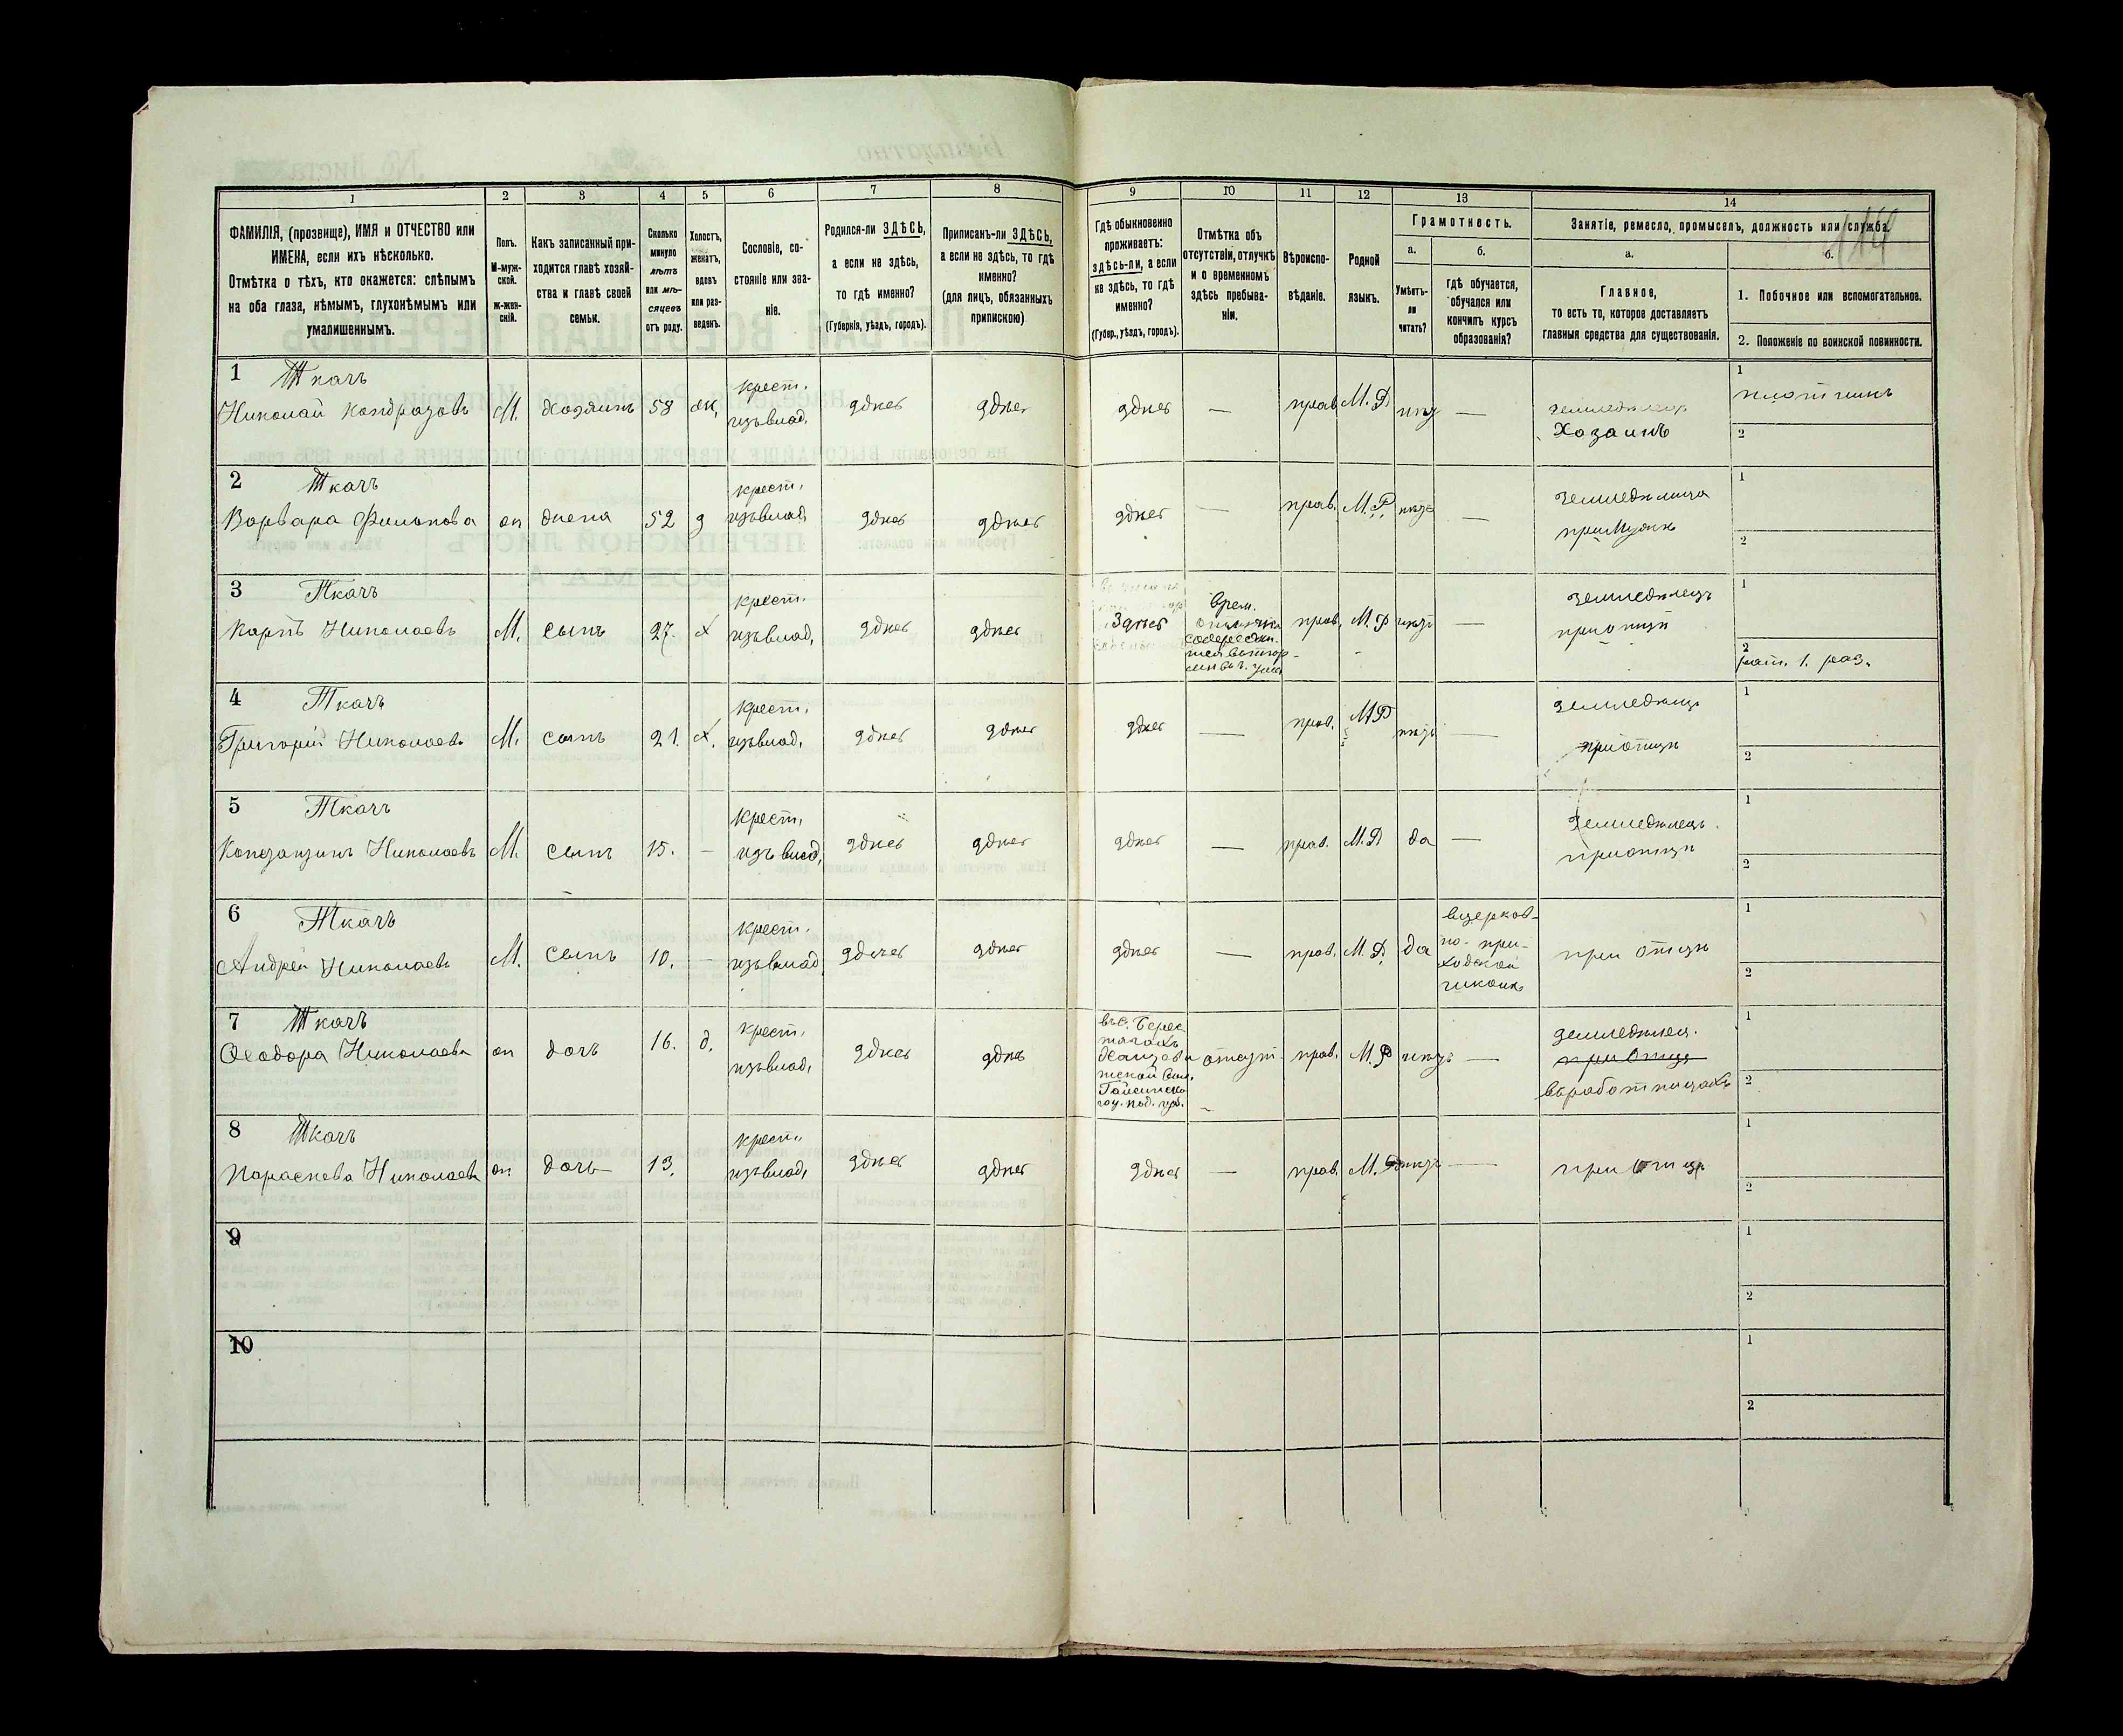 1 2 3 4 5 6 7 8 9 10 11 12 13 14
ФАМИЛІЯ, (прозвище), ИМЯ и ОТЧЕСТВО или
ИМЕНА, если ихъ нѣсколько.
Отмѣтка о тѣхъ, кто окажется: слѣпымъ
на оба глаза, нѣмымъ, глухонѣмымъ или
умалишеннымъ.
Полъ.
М-муж-
ской.
ж-жен-
скій.
Какъ записанный при-
ходится главѣ хозяй-
ства и главѣ своей
семьи.
Сколько
минуло
лѣтъ
или мѣ-
сяцевъ
отъ роду.
Холостъ,
женатъ,
вдовъ
или раз-
веденъ.
Сословіе, со-
стояніе или зва-
ніе.
Родился-ли ЗДѢСЬ,
а если не здѣсь,
то гдѣ именно?
(Губернія, уѣздъ, городъ).
Приписанъ-ли ЗДѢСЬ,
а если не здѣсь, то гдѣ
именно?
(для лицъ, обязанныхъ
припискою)
Гдѣ обыкновенно
проживаетъ:
здѣсь-ли, а если
не здѣсь, то гдѣ
именно?
(Губер., уѣздъ, городъ).
Отмѣтка объ
отсутствіи, отлучкѣ
и о временномъ
здѣсь пребыва-
ніи.
Вѣроиспо-
вѣданіе.
Родной
языкъ.
Грамотность.
а.
Умѣетъ-
ли
читать?
б.
гдѣ обучается,
обучался или
кончилъ курсъ
образованія?
Занятіе, ремесло, промыселъ, должность или служба.
а.
Главное,
то есть то, которое доставляетъ
главныя средства для существованія.
б.
1. Побочное или вспомогательное.
2. Положеніе по воинской повинности.
1 Ткачъ
Николай Кондратовъ М. Хозяинъ 58 ж. крест. изъ влад. здѣсь здѣсь здѣсь — прав. М. Р. нѣтъ — земледѣлецъ
Хозаинъ
1 плотникъ
2
2 Ткачъ
Варвара жена 52 крест. изъ влад. здѣсь здѣсь здѣсь — прав. М. Р. нѣтъ —
при мужѣ
1
2
3 Ткачъ
Карпъ Николаевъ М. сынъ 27. х крест. изъ влад. здѣсь здѣсь Здѣсь врем.
прав. М. Р нѣтъ — земледѣлецъ
при отцѣ
1
2 рат. 1. раз.
4 Ткачъ
Григорій Николаевъ М. сынъ 21. х. крест. изъ влад. здѣсь здѣсь здѣсь — прав. М Р нѣтъ — земледѣлецъ
при отцѣ
1
2
5 Ткачъ
Николаевъ М. сынъ 15. — крест. изъ влад. здѣсь здѣсь здѣсь — прав. М. Р да — земледѣлецъ.
при отцѣ
1
2
6 Ткачъ
Андрей Николаевъ М. сынъ 10. — крест. изъ влад. здѣсь здѣсь здѣсь — прав. М. Р. да въ церков-
но-при-
ходской
школѣ
при отцѣ
1
2
7 Ткачъ
Николаева дочь 16. д. крест. изъ влад. здѣсь здѣсь въ с.
под. губ.
прав. М. Р нѣтъ —
при отцѣ
1
2
8 Ткачъ
Параскева Николаева дочь 13. крест. изъ влад. здѣсь здѣсь здѣсь — прав. М. Р нѣтъ — при отцѣ
1
2
9
1
2
10
1
2